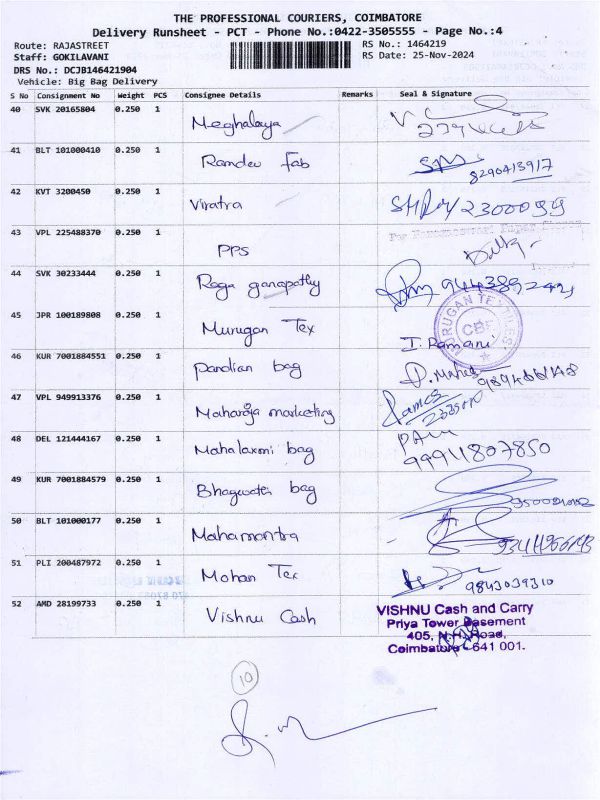 THE PROFESSIONAL COURIERS, COIMBATORE
Delivery Runsheet - PCT - Phone No.:0422-3505555 - Page No.:4
Route: RAJASTREET
RS No.: 1464219
Staff: GOKILAVANI
RS Date: 25-Nov-2024
DRS No.: DCJB146421904
Vehicle: Big Bag Delivery
S No Consignment No Weight PCS Consignee Details Remarks Seal & Signature
40 SVK 20165804 0.250 1 Meghalaya
41 BLT 101000410 0.250 1 Ramdev Fab 8290413917
42 KVT 3200450 0.250 1 Viratra 2300099
43 VPL 225488370 0.250 1 PPS
44 SVK 30233444 0.250 1 Raga ganapathy
45 JPR 100189808 0.250 1 Murugan Tex I. Ramanu
MURUGAN TEXTILES
CBE
46 KUR 7001884551 0.250 1 Pandian bag
47 VPL 949913376 0.250 1 Maharaja marketing
48 DEL 121444167 0.250 1 Mahalaxmi bag 99911807850
49 KUR 7001884579 0.250 1 Bhagwati bag
50 BLT 101000177 0.250 1 Mahamantra
51 PLI 200487972 0.250 1 Mohan Tex 9843039310
52 AMD 28199733 0.250 1 Vishnu Cash
VISHNU Cash and Carry
Priya Tower Basement
405, N.H. Road,
Coimbatore - 641 001.
10